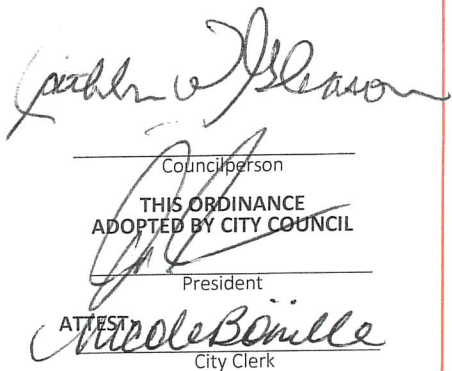 Councilperson
THIS ORDINANCE
ADOPTED BY CITY COUNCIL
President
ATTEST: Nicole Bonille
City Clerk